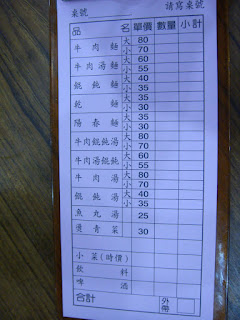 桌號 請寫桌號
品名 單價 數量 小計
牛肉麵 大 80
小 70
牛肉湯麵 大 60
小 55
餛飩麵 大 40
小 35
乾麵 大 35
小 30
陽春麵 大 35
小 30
牛肉餛飩湯 大 80
小 70
牛肉湯餛飩 大 60
小 55
牛肉湯 大 80
小 70
餛飩湯 大 40
小 35
魚丸湯 25
燙青菜 30
小菜(時價)
飲料
啤酒
合計 外帶